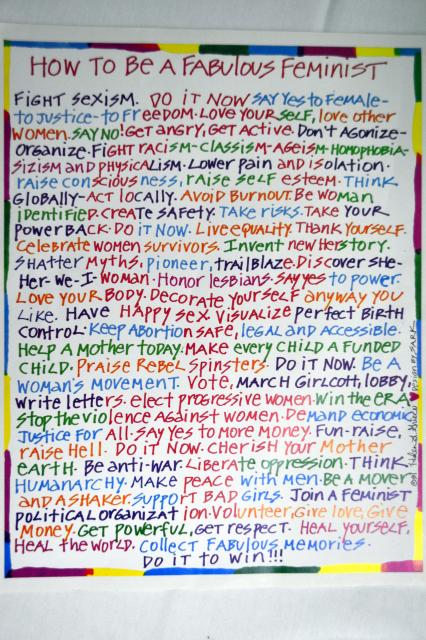 HOW TO BE A FABULOUS FEMINIST
FIGHT SEXISM. DO IT NOW SAY YES TO FEMALE-
to JUSTICE-to FREEDOM.LOVE YOUR SELF, love other
WOMEN.SAY NO!Get angry,GET ACTIVE. DON't AGONIZE-
ORGANIZE.FIGHT RACISM-CLASSISM-AGEISM-HOMOPHOBIA-
SIZISM AND PHYSICALISM.LOWER PAIN and ISOLATION.
raise consciousness, raise self esteem. THINK
GLOBALLY-ACT LOCALLY. AVOID BURNOUT.BE WOMAN
identified.create SAFETY.TAKE risks.TAKE YOUR
POWER BACK. DO IT NOW. LIVE EQUALITY. THANK YOURSELF.
Celebrate women survivors. Invent new HERstory.
SHATTER MYTHS. PIONEER, TRAILBLAZE.DISCOVER SHE-
HER-WE-I-WOMAN.HONOR lesbians.SAY YES to power.
LOVE YOUR BODY. DECORATE YOURSELF anyway you
LIKE. HAVE HAPPY SEX. VISUALIZE perfect BIRTH
CONTROL.KEEP ABORTION SAFE, legal AND ACCESSIBLE.
HELP A MOTHER TODAY.MAKE EVERY CHILD A FUNDED
CHILD. PRAISE REBEL SPINSTERS. DO IT NOW. BE A
WOMAN'S MOVEMENT. VOTE, MARCH GIRLCOTT, LOBBY,
WRITE LETTERS. elect progressive women.WIN THE ERA.
STOP THE VIOLENCE AGAINST WOMEN. DEMAND economic
JUSTICE FOR ALL.SAY YES TO MORE MONEY. FUN-RAISE,
raise HELL. DO IT NOW.CHERISH YOUR MOTHER
EARTH. BE anti-WAR.LIBERATE oppression.THINK
HUMANARCHY. MAKE peace WITH MEN.BE A MOVER
AND A SHAKER.SUPPORT BAD GIRLS. JOIN A FEMINIST
POLITICAL ORGANIZATION.VOLUNTEER,GIVE LOVE, GIVE
MONEY.GET POWERFUL,GET RESPECT. HEAL YOURSELF,
HEAL THE WORLD. COLLECT FABULOUS MEMORIES.
DO IT TO WIN!!!
DESIGN BY SARK